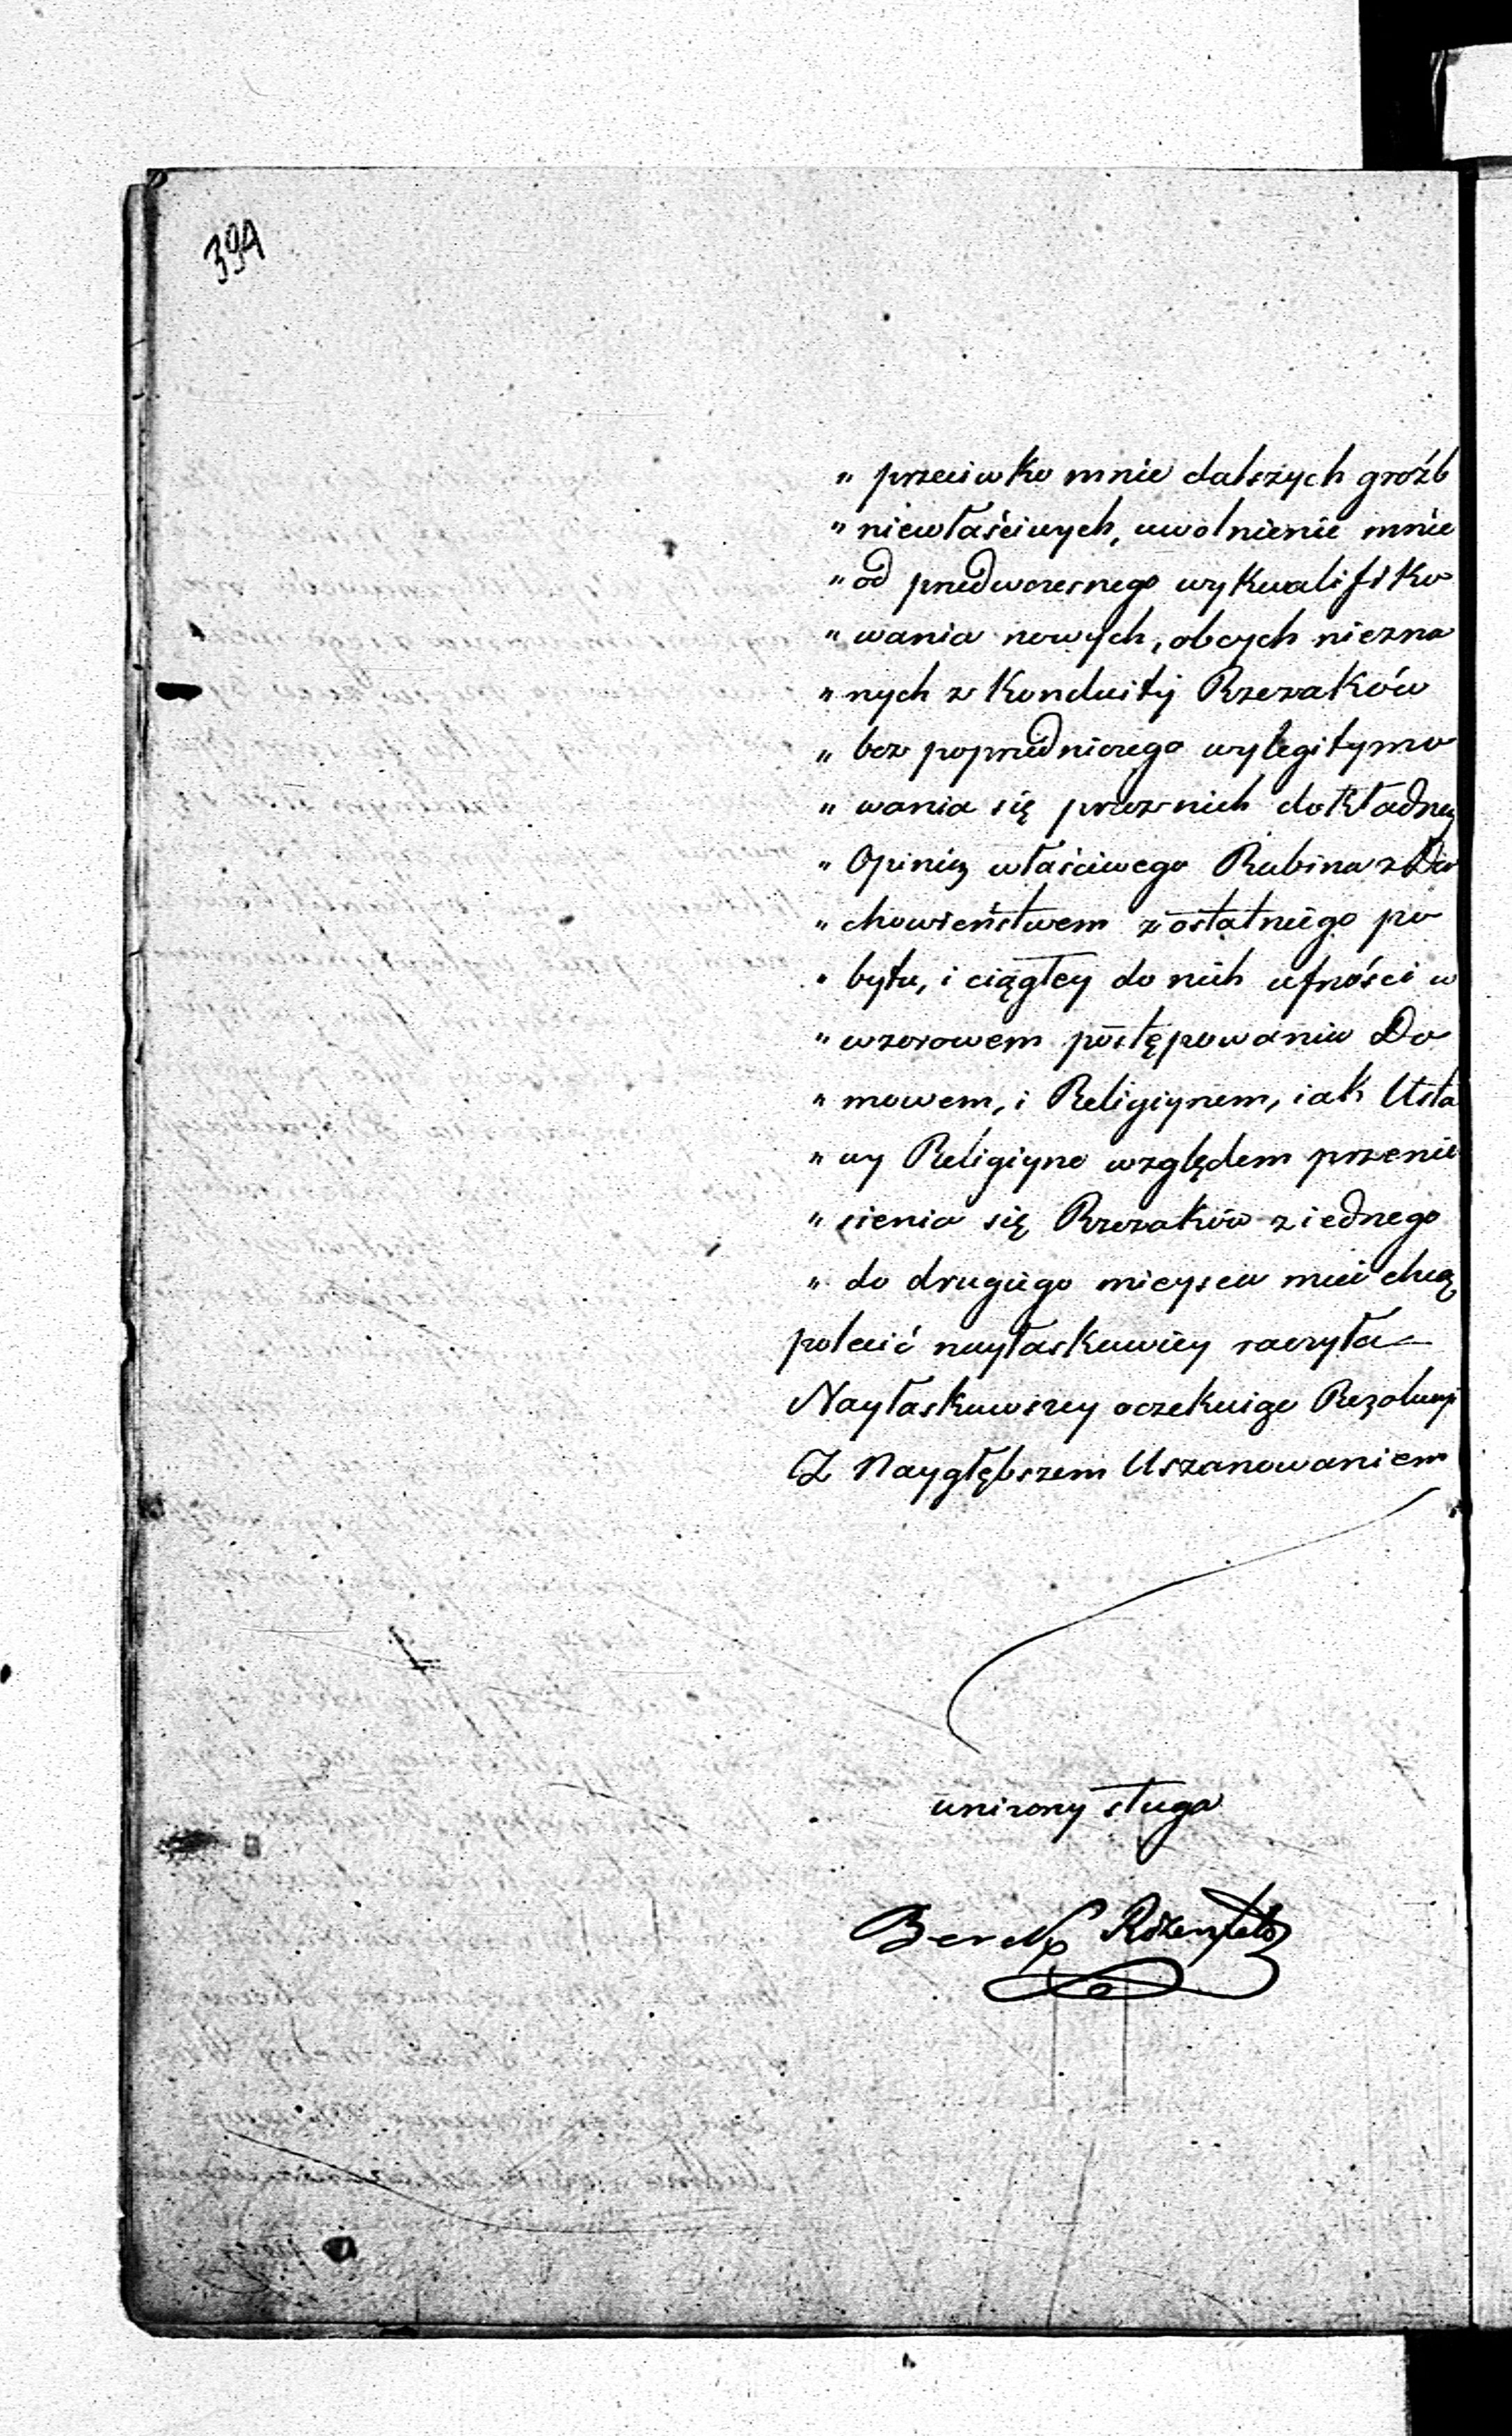 394
„ przeciwko mnie dalszych gróźb
„ niewłaściwych, uwolnienie mnie
„ od przedwczesnego wykwalifiko
„ wania nowych, obcych niezna
„ nych z Konduity Rzezaków
„ bez poprzedniczego wylegitymo
„ wania się przez nich dokładney
„ Opinij właściwego Rabina z Du
„ chowieństwem z ostatniego po
„ bytu, i ciągłey do nich ufności w
„ wzorowem postępowaniu Do
„ mowem, i Religiynem, iak Usta
„ wy Religiyne względem przenie
„ sienia się Rzezaków z iednego
„ do drugiego mieysca mieć chcą
polecić nayłaskawiey raczyła
Nayłaskawszey oczekuige Rezolucyi
Z Naygłębszem Uszanowaniem
unizony sługa
Berek